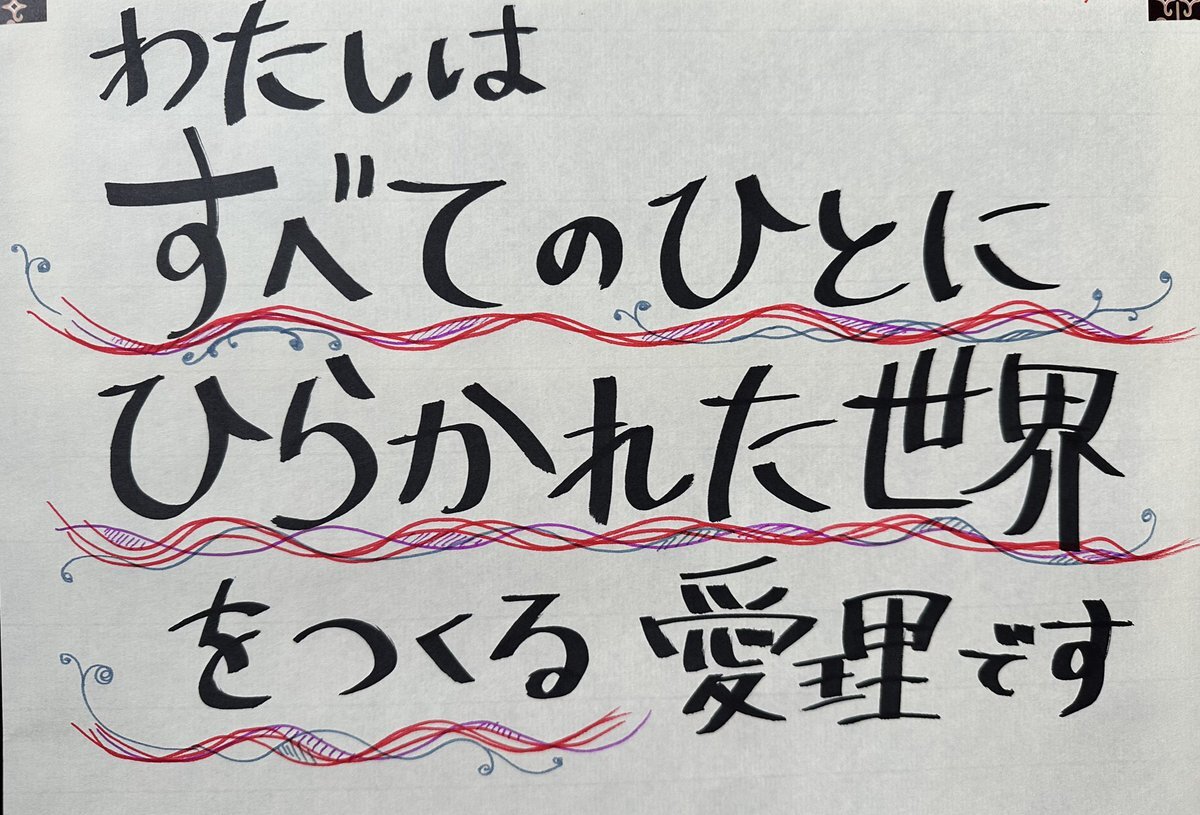 わたしは
すべてのひとに
ひらかれた世界
をつくる 愛理です